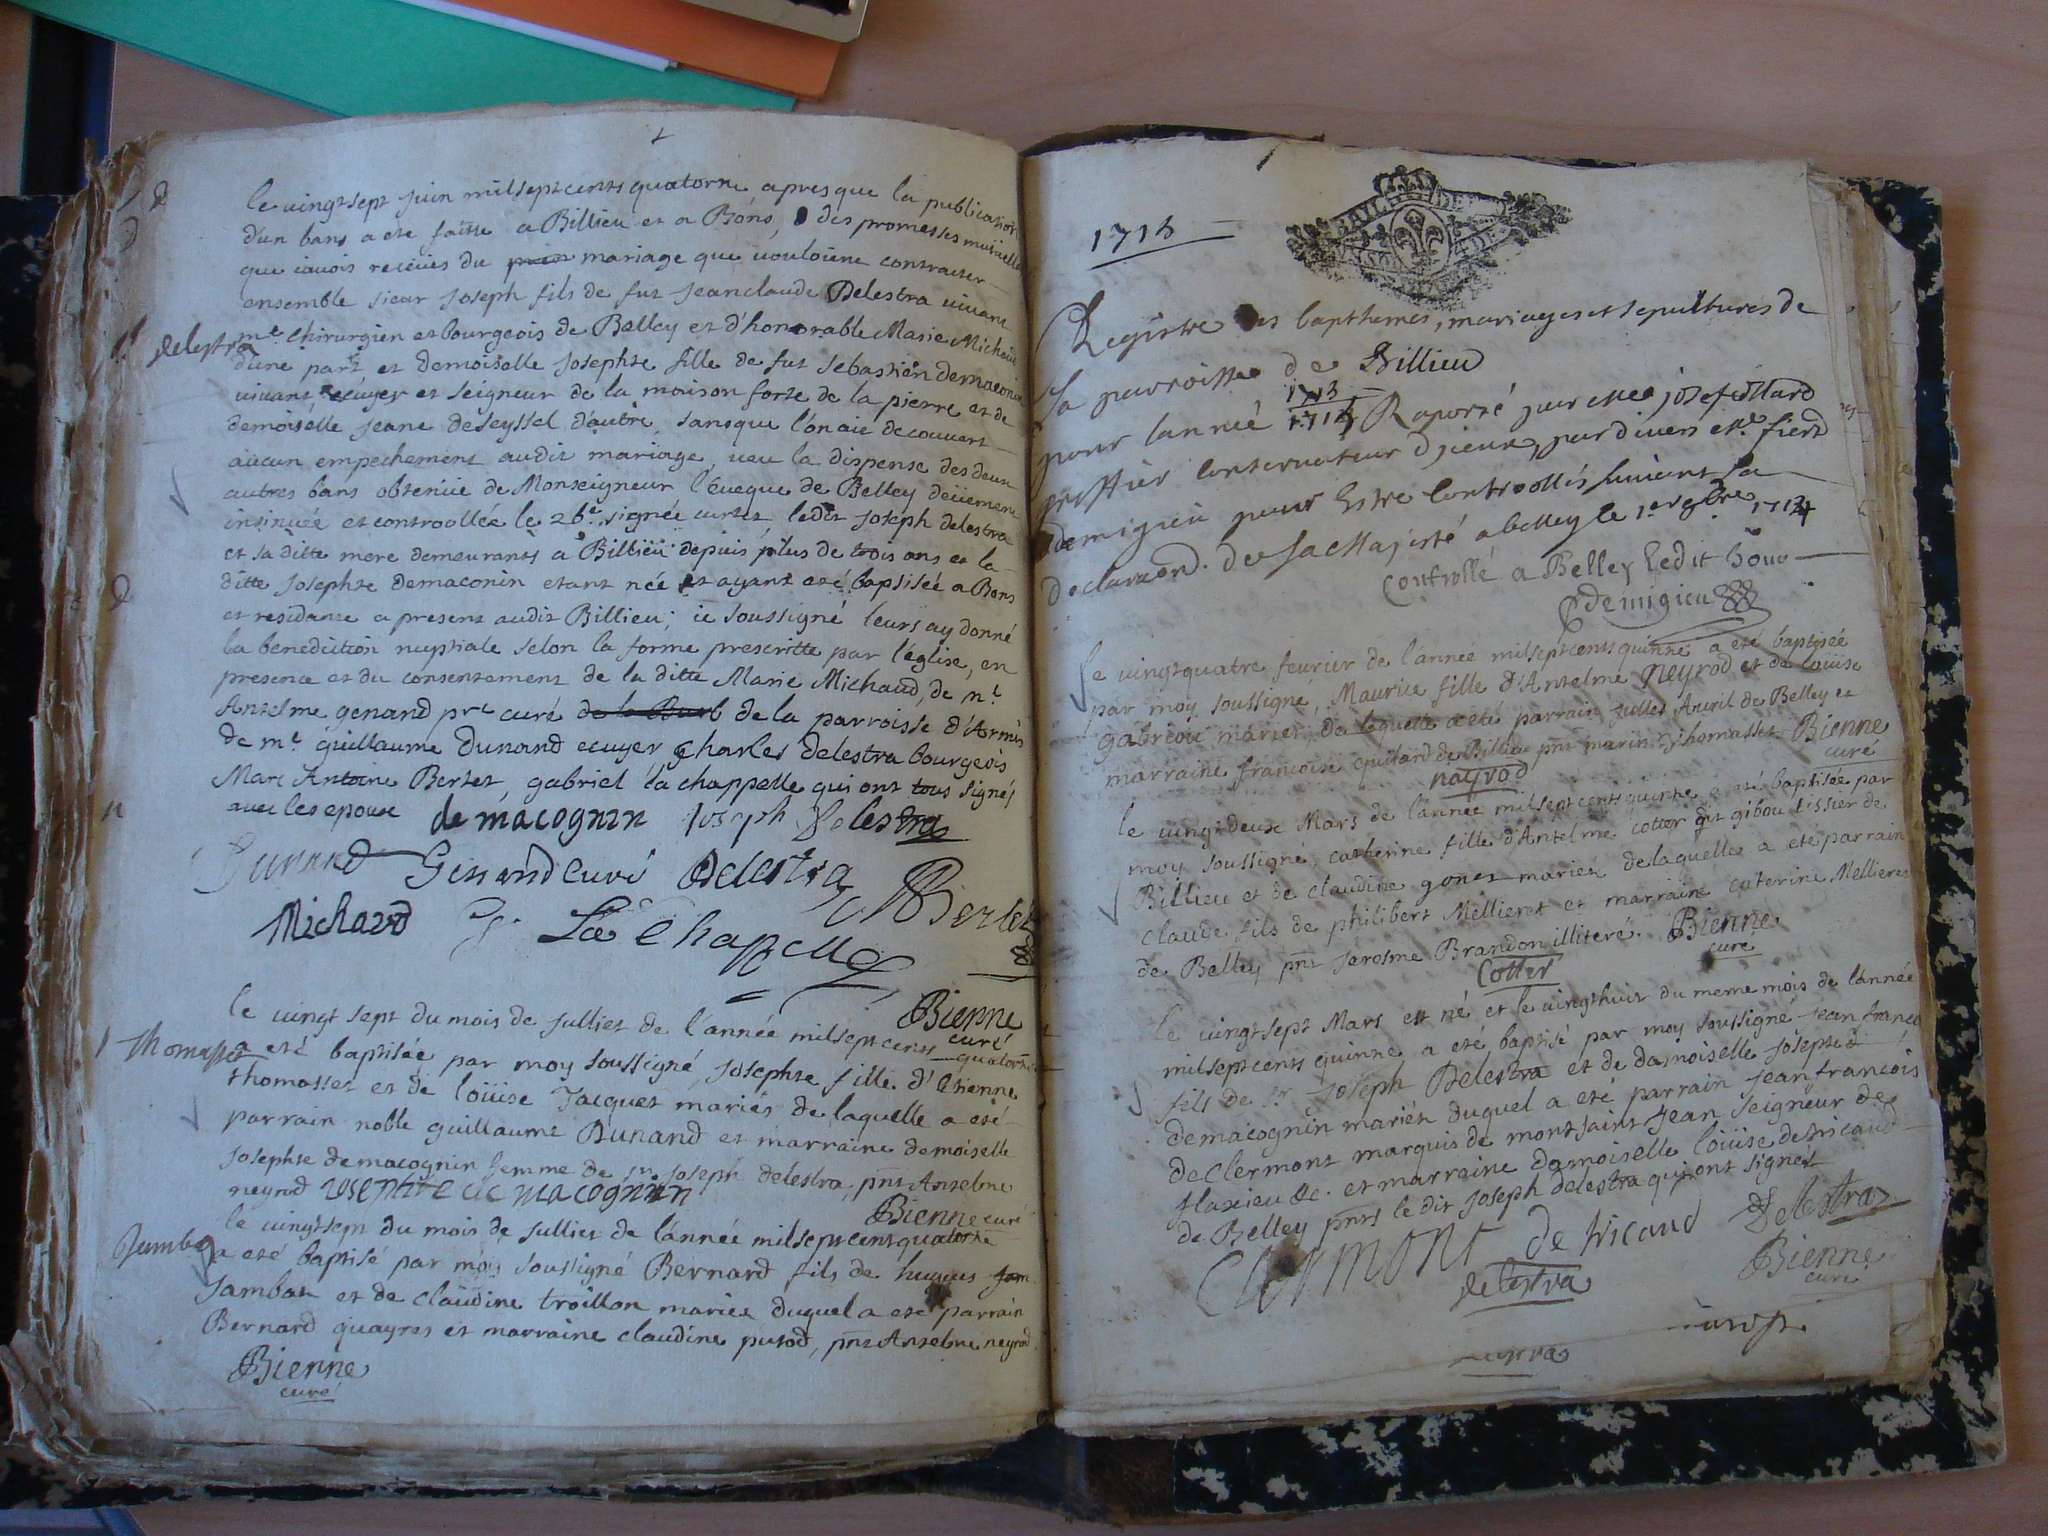 le vingt sept juin mil sept cents quatorze apres que la publication
d'un bans a ete faitte a Billieu et a Bons, des promesses mutuelles
que iavois receües du mariage que vouloient contracter
ensemble sieur Joseph fils de fut Jeanclaude Delestra vivant
delestra
me chirurgien et bourgeois de Belley et d'honorable Marie Michaud
d'une part et demoiselle Josephte fille de fut Sebastien demaconin
vivant ecuyer et seigneur de la maison forte de la pierre et de
demoiselle Jeane de Seyssel d'autre, sans que l'on aie decouvert
aucun empechement audit mariage, veu la dispense des deux
autres bans obtenüe de Monseigneur l'évêque de Belley deüement
insinuée et controollée le 26e signée curtet ledit Joseph delestra
et sa ditte mere demeurants a Billieu depuis plus de trois ans et la
ditte Josephte demaconin etant née et ayant eté baptisée a Bons
et residante a present audit Billieu; ie soussigné leurs ay donné
la benediction nuptiale selon la forme prescritte par l'église, en
presence et du consentement de la ditte Marie Michaud, de
Antelme genand pre curé de la parroisse d'Armis
de me guillaume Dunand ecuyer Charles delestra bourgeois
Marc Antoine Bertet, gabriel la chappelle qui ont tous signés
avec les epoux de macognin Joseph Delestra
Dunand Genand curé Delestra Bertet
Michaud La Chapelle
Bienne
curé
le vingt sept du mois de Julliet de l'année mil sept cents quatorze
Thomasset
a eté baptisée par moy soussigné, Josephte fille d'Etienne
thomasset et de loüise Jacquet mariés de laquelle a eté
parrain noble guillaume Dunand et marraine demoiselle
Josephte demacognin femme de sr Joseph delestra, pnt Antelme
neyrod josephte de macognin
Bienne curé
le vingt sept du mois de Julliet de l'année mil sept cent quatorze
Jambaz
a eté baptisé par moy soussigné Bernard fils de hugues
Jambaz et de claudine troillon mariez duquel a eté parrain
Bernard quayres et marraine claudine putod, pnt Antelme neyrod
Bienne
curé
1715
Registre des bapthemes, mariages et sepultures de
la parroisse de Billieu
1713
pour lannée 1714 Raporté par
greffier conservateur
demigieu pour Estre Controollés suivant la
declaraon. de sa Majesté a belley le 1714
Controllé a Belley Ledit Jour
Demigieu
le vingtquatre fevrier de l'année mil sept cents quinze a eté baptisée
par moy soussigné, Maurice fille d'Antelme neyrod et de loüise
gabriou mariez, de laquelle a eté parrain Julles Avril de Belley et
marraine francoise guitard de Billieu pnt marin thomasset Bienne
curé
nayrod
le vingtdeux Mars de l'année mil sept cents quinze a eté baptisée par
moy soussigné, catherine fille d'Antelme cotter dit gibou tissier de
Billieu et de claudine gonet mariez de laquelle a eté parrain
claude fils de philibert Mellieret et marraine caterine Mellieret
de Belley pnt Jerosme Brandon illiteré. Bienne
curé
Cotter
le vingt sept Mars est né et le vingthuit du meme mois de l'année
mil sept cents quinze a eté baptisé par moy soussigné Jean francois
fils de sr Joseph Delestra et de damoiselle Josephte
demacognin mariez duquel a eté parrain Jean francois
de Clermont marquis de mont saint Jean seigneur de
flaxieu &c. et marraine damoiselle loüise de tricaud
de Belley pnts le dit Joseph delestra qui ont signés
Clermont de tricaud Delestraz
delestra
Bienne
curé